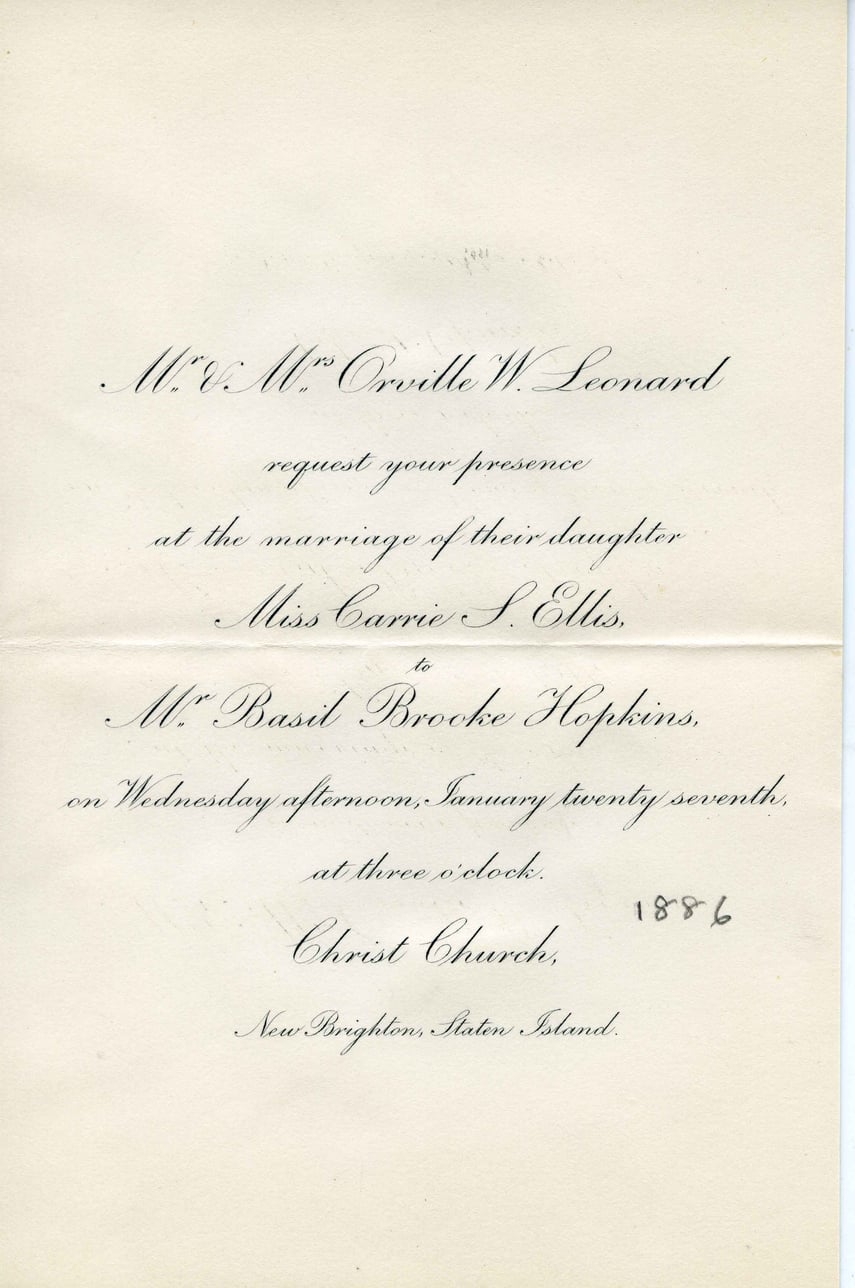 Mr. & Mrs. Orville W. Leonard
request your presence
at the marriage of their daughter
Miss Carrie S. Ellis,
to
Mr. Basil Brooke Hopkins,
on Wednesday afternoon, January twenty seventh,
at three o'clock.
1886
Christ Church,
New Brighton, Staten Island.